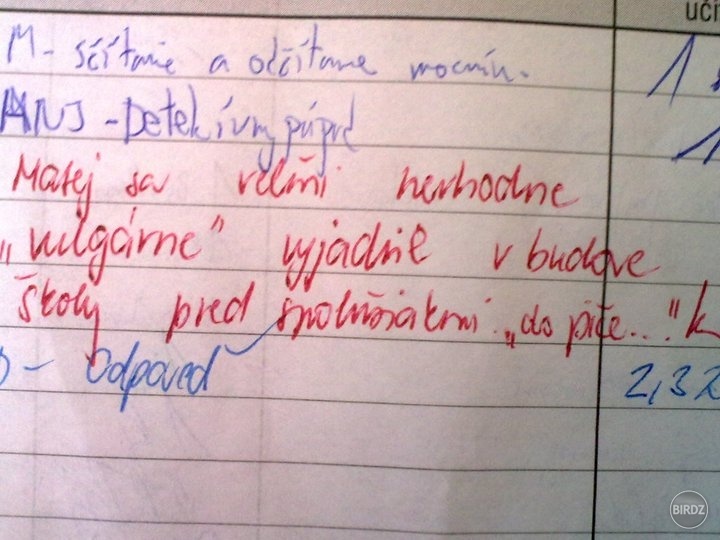 učí
M - sčítanie a odčítanie mocnín. 1
ANJ - Detektívny prípad 1
Matej sa veľmi nevhodne
„vulgárne" vyjadril v budove
školy pred spolužiakmi „do piče..." k
D - Odpoveď 2,32
BIRDZ